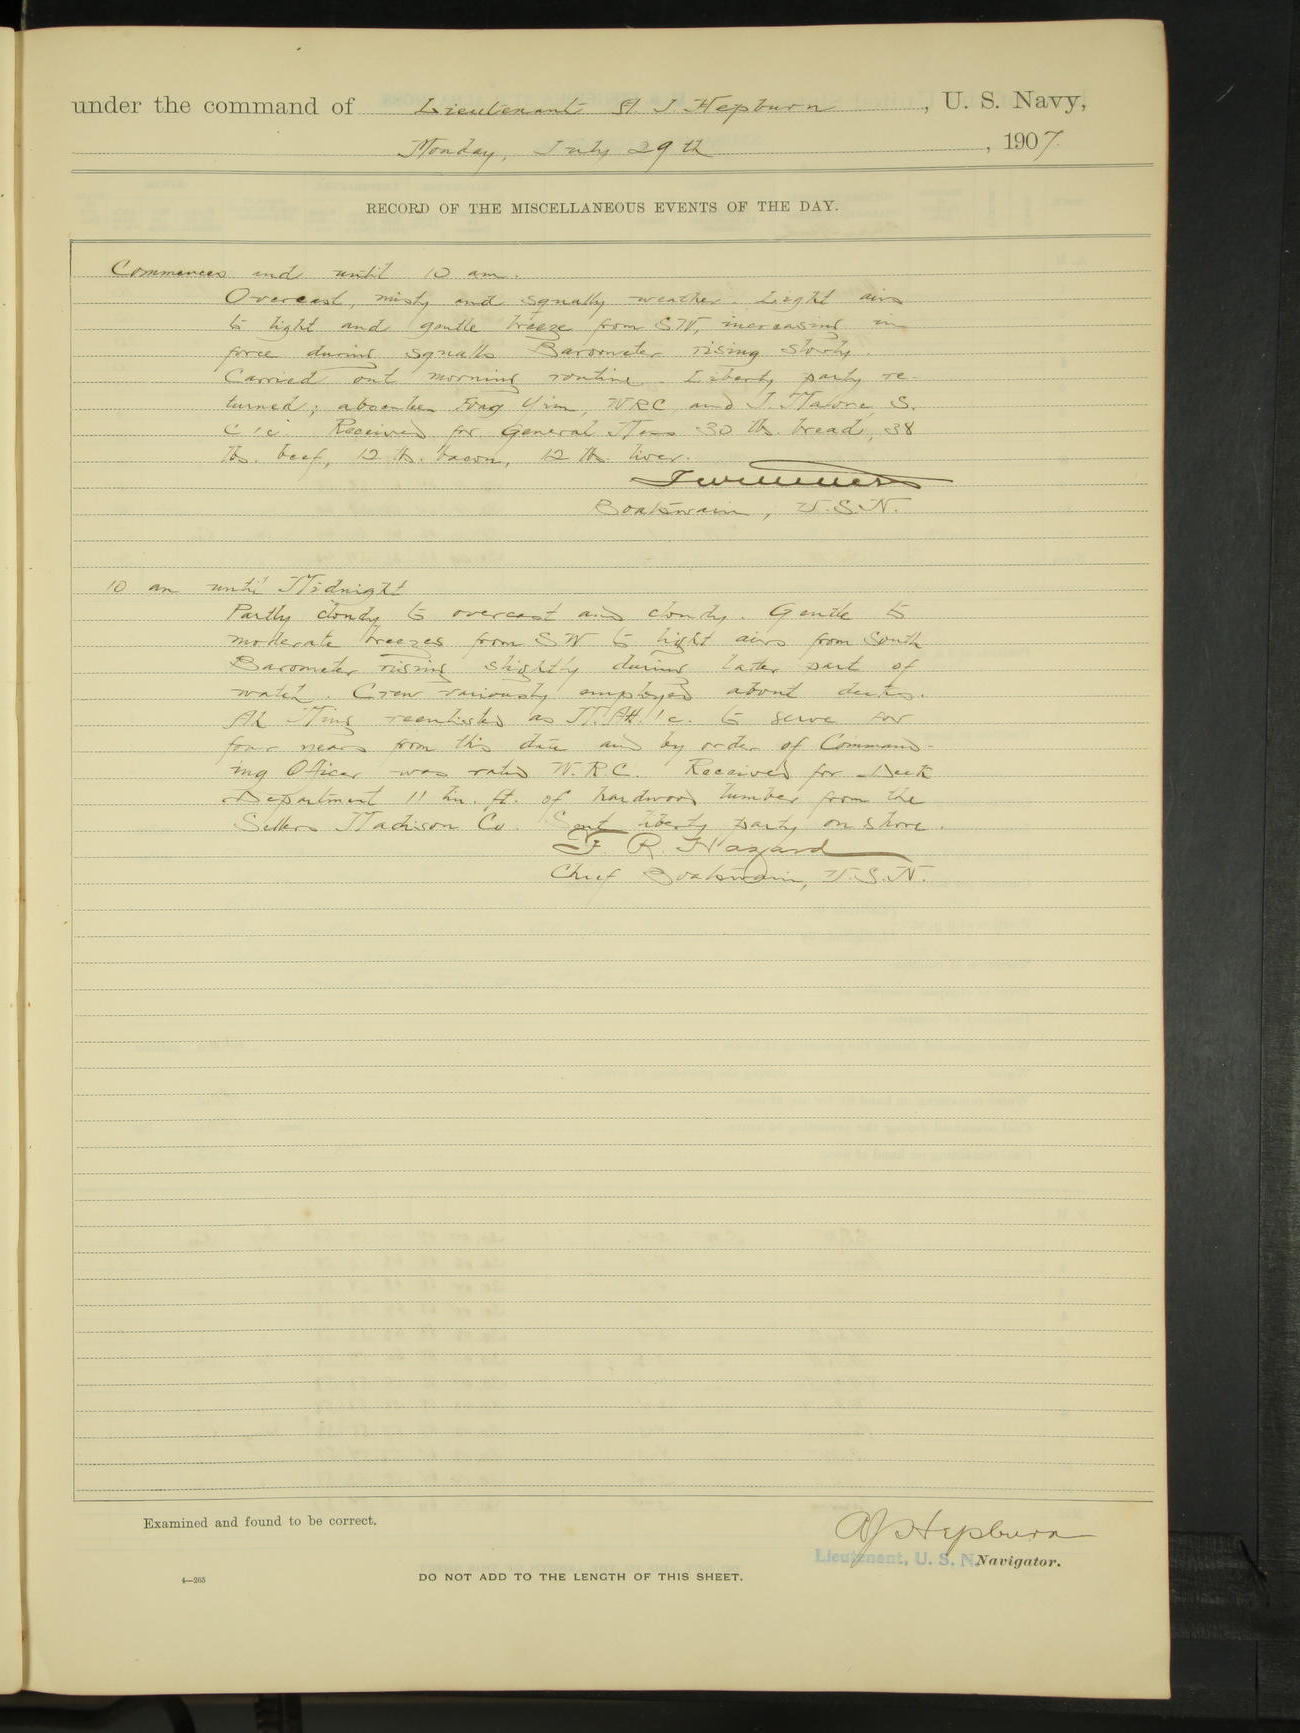 under the command of Lieutenant A. J. Hepburn, U. S. Navy,
Monday, July 29th, 1907.
RECORD OF THE MISCELLANEOUS EVENTS OF THE DAY.
Commences and until 10 am.
Overcast, misty and squally weather. Light airs
to light and gentle breeze from SW, increasing in
force during squalls Barometer rising slowly.
Carried out morning routine. Liberty party re-
turned; absentee Yim, WRC, and J. S.
C 1c. Received for General Mess 30 lbs. bread, 38
lbs. beef, 12 lbs. bacon, 12 lbs. liver.
Boatswain, U.S.N.
10 am until Midnight
Partly cloudy to overcast and cloudy. Gentle to
moderate breezes from SW to light airs from South
Barometer rising slightly during latter part of
watch. Crew variously employed about decks.
Ah Ming reenlisted as M.Att. 1c. to serve for
four years from this date and by order of Command-
ing Officer was rated W.R.C. Received for Deck
Department 11 lin. ft. of hardwood lumber from the
Sellers Madison Co. Sent liberty party on shore.
F. R. Hazard
Chief Boatswain, U.S.N.
Examined and found to be correct.
A J Hepburn
Lieutenant, U. S. N. Navigator.
4—265
DO NOT ADD TO THE LENGTH OF THIS SHEET.